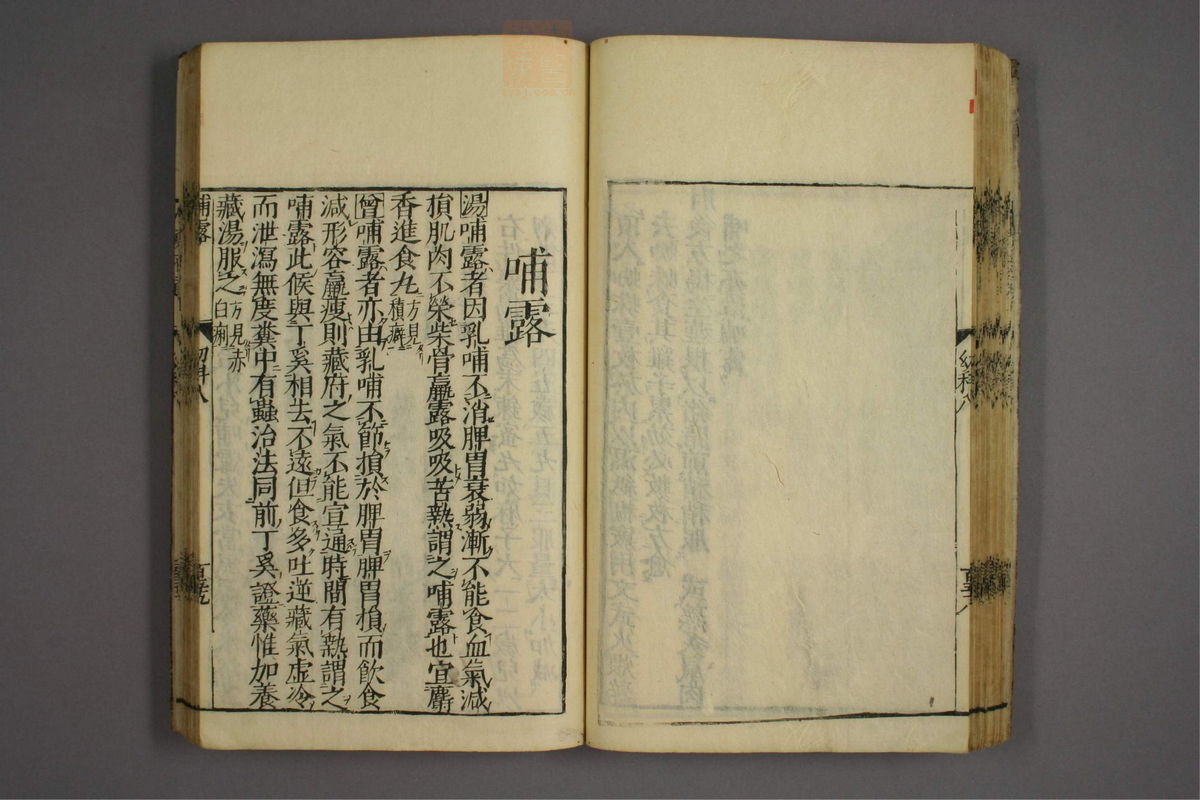 幼科八
哺露
湯哺露者因乳哺不消脾胃衰弱漸不能食血氣減
損肌肉不榮柴骨羸露吸吸苦熱謂之哺露也宜麝
香進食丸方見積癖
曾哺露者亦由乳哺不節損於脾胃脾胃損而飲食
減形容羸瘦則藏府之氣不能宣通時間有熱謂之
哺露此候與丁奚相去不遠但食多吐逆藏氣虛冷
而泄瀉無度糞中有蟲治法同前丁奚證藥惟加養
藏湯服之方見赤白痢
哺露
幼科八